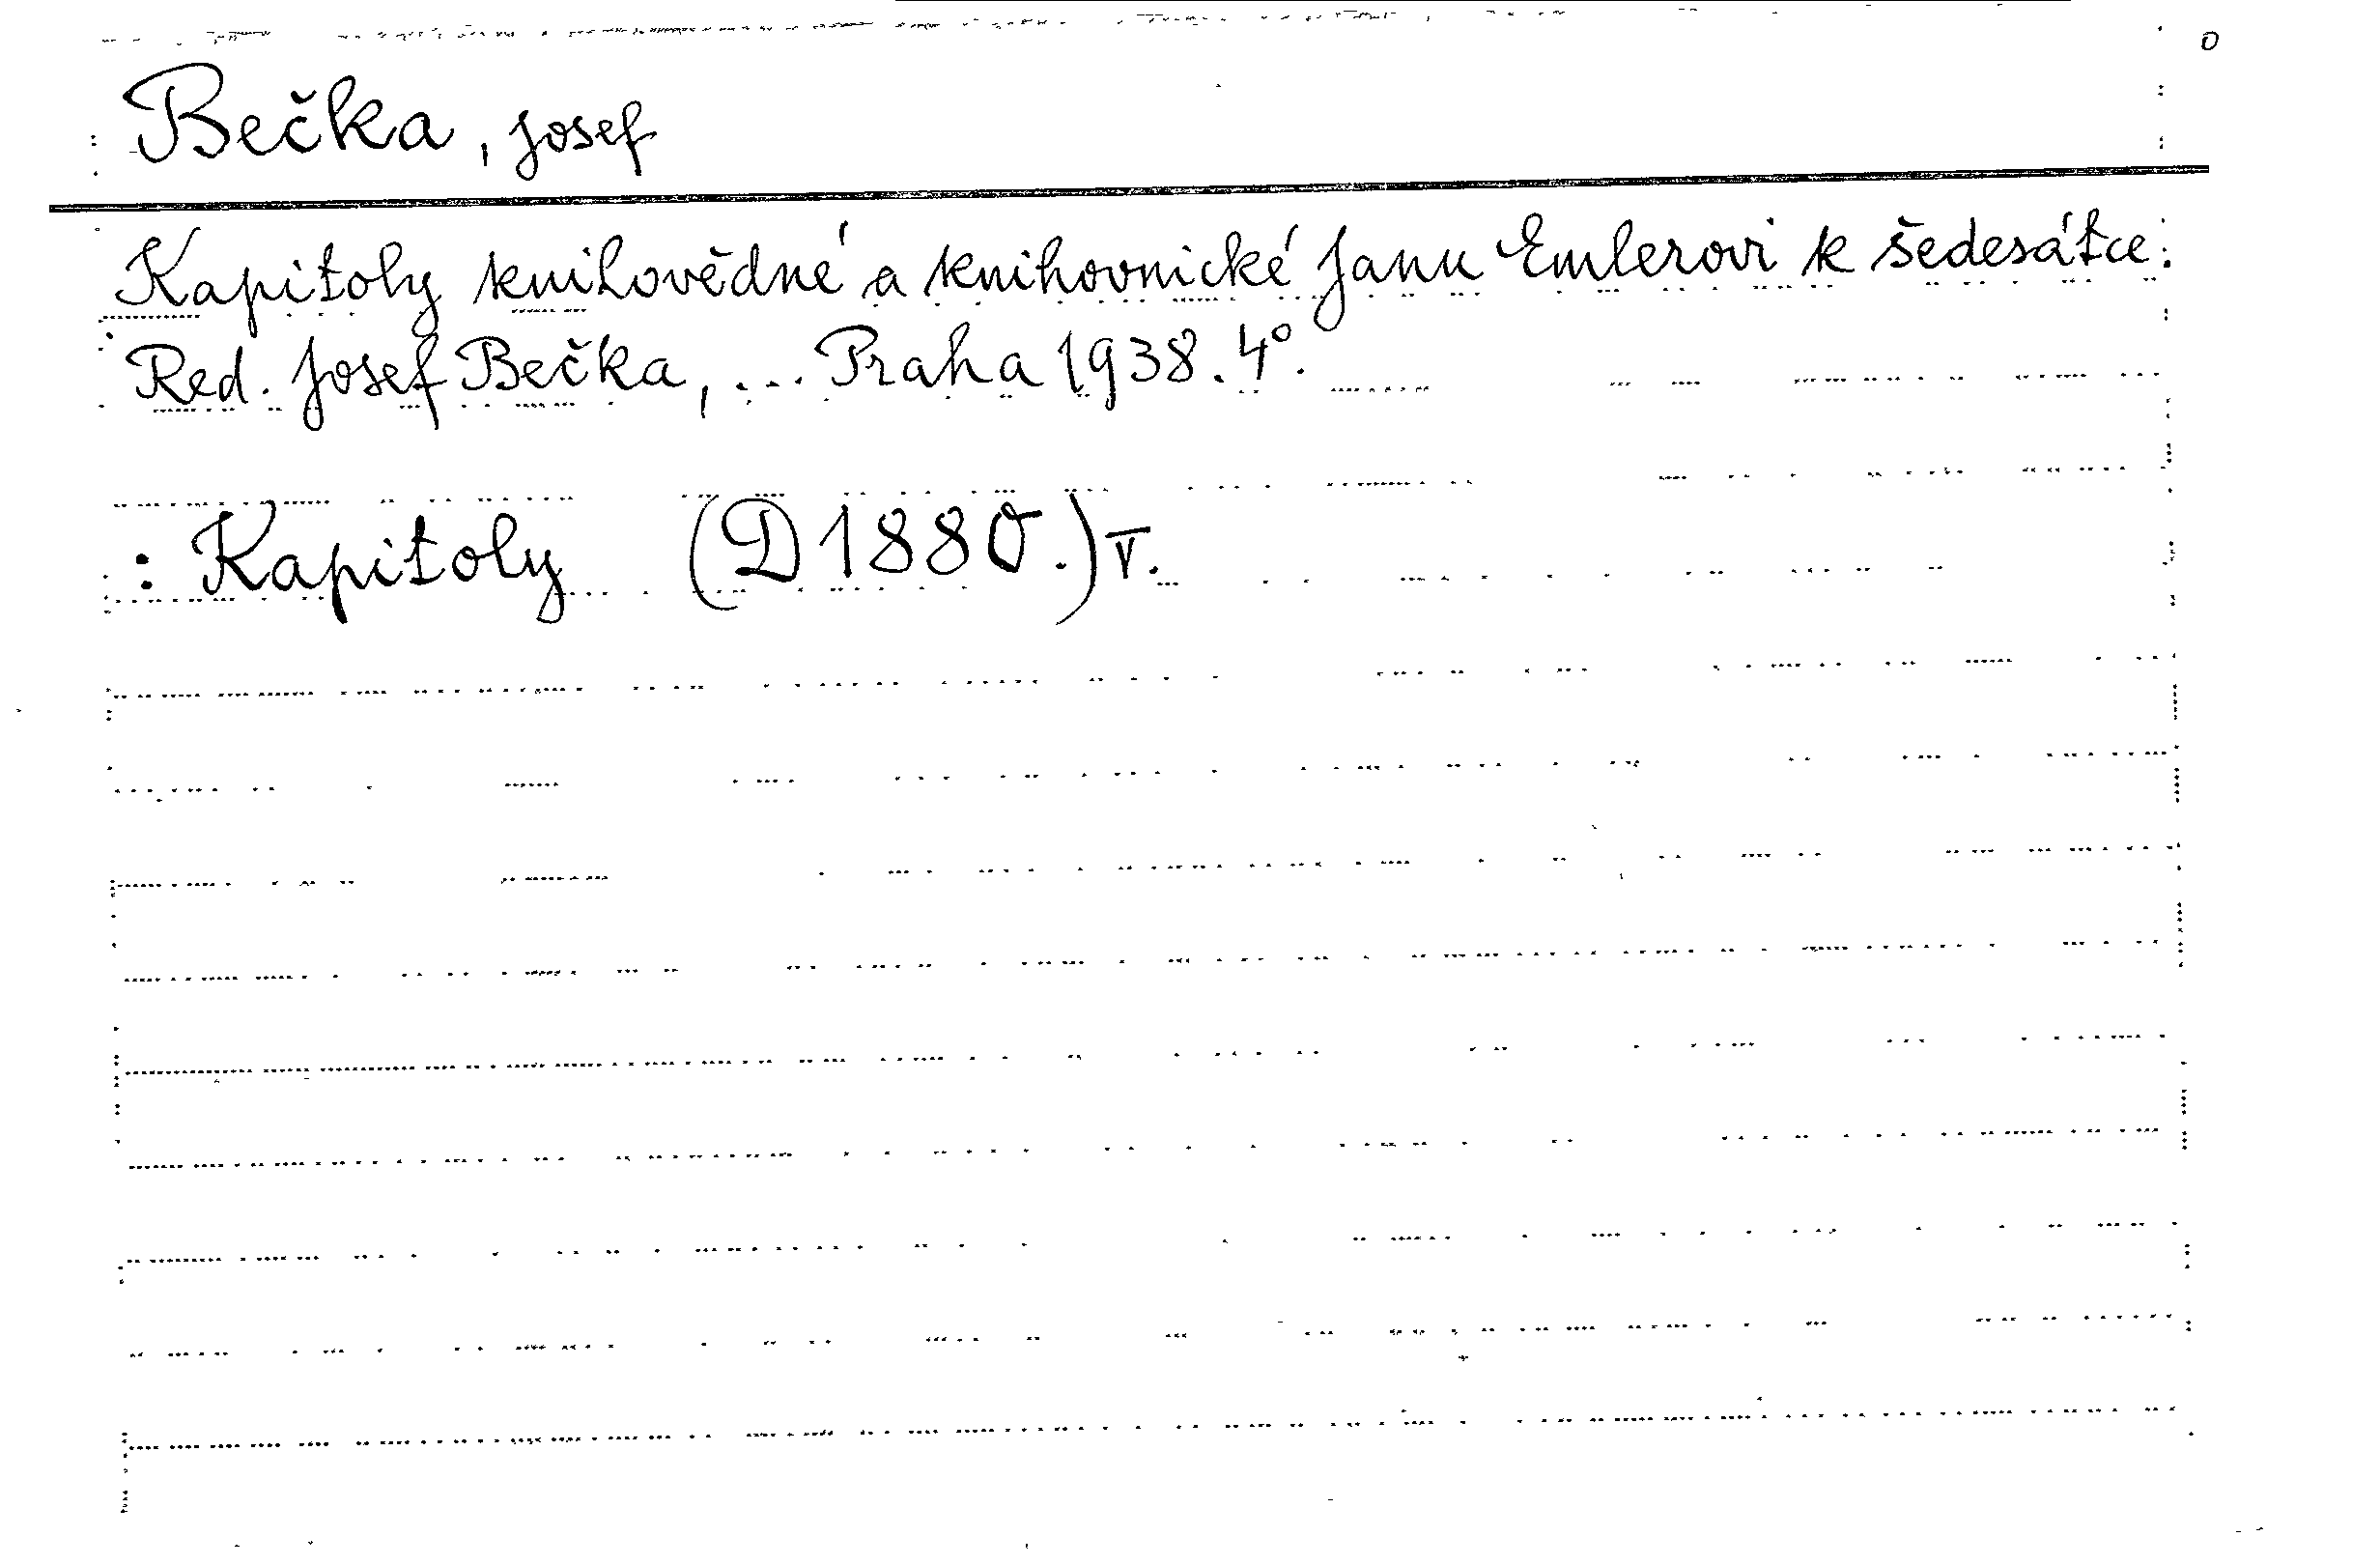 o
Bečka, Josef
Kapitoly knihovědné a knihovnické Janu Emlerovi k šedesátce.
Red. Josef Bečka, ... Praha 1938. 4°.
: Kapitoly (D 1880.) V.